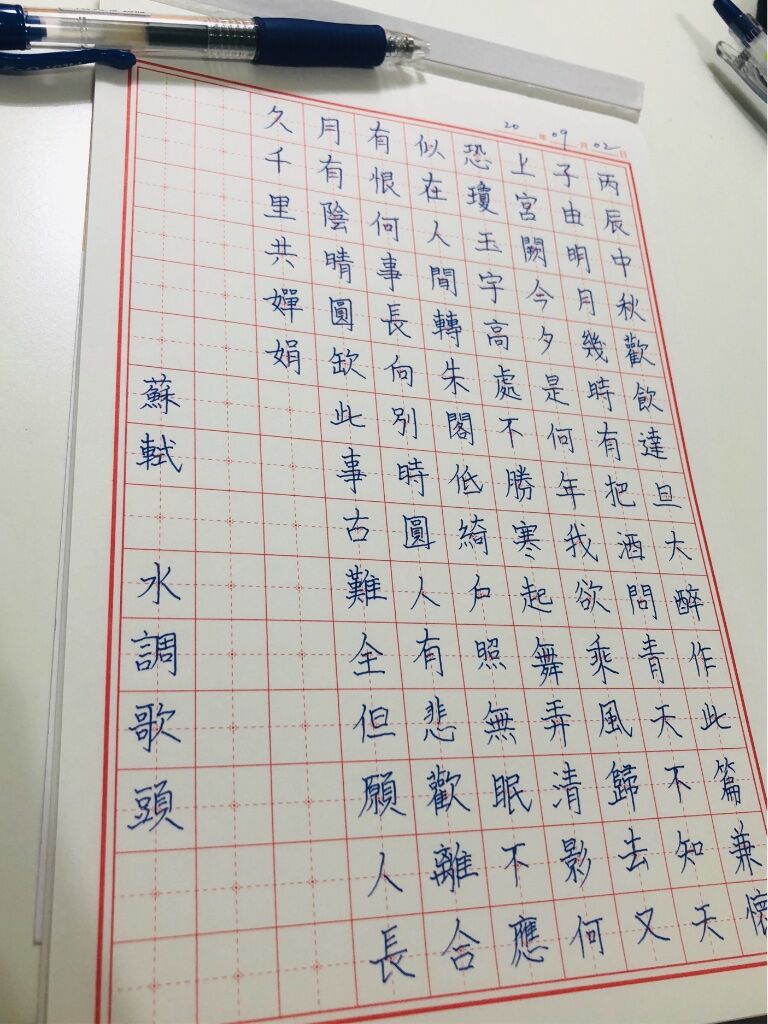 20年09月02日
丙辰中秋歡飲達旦大醉作此篇兼懷
子由明月幾時有把酒問青天不知天
上宮闕今夕是何年我欲乘風歸去又
恐瓊玉宇高處不勝寒起舞弄清影何
似在人間轉朱閣低綺户照無眠不應
有恨何事長向別時圓人有悲歡離合
月有陰晴圓缺此事古難全但願人長
久千里共嬋娟
蘇軾 水調歌頭